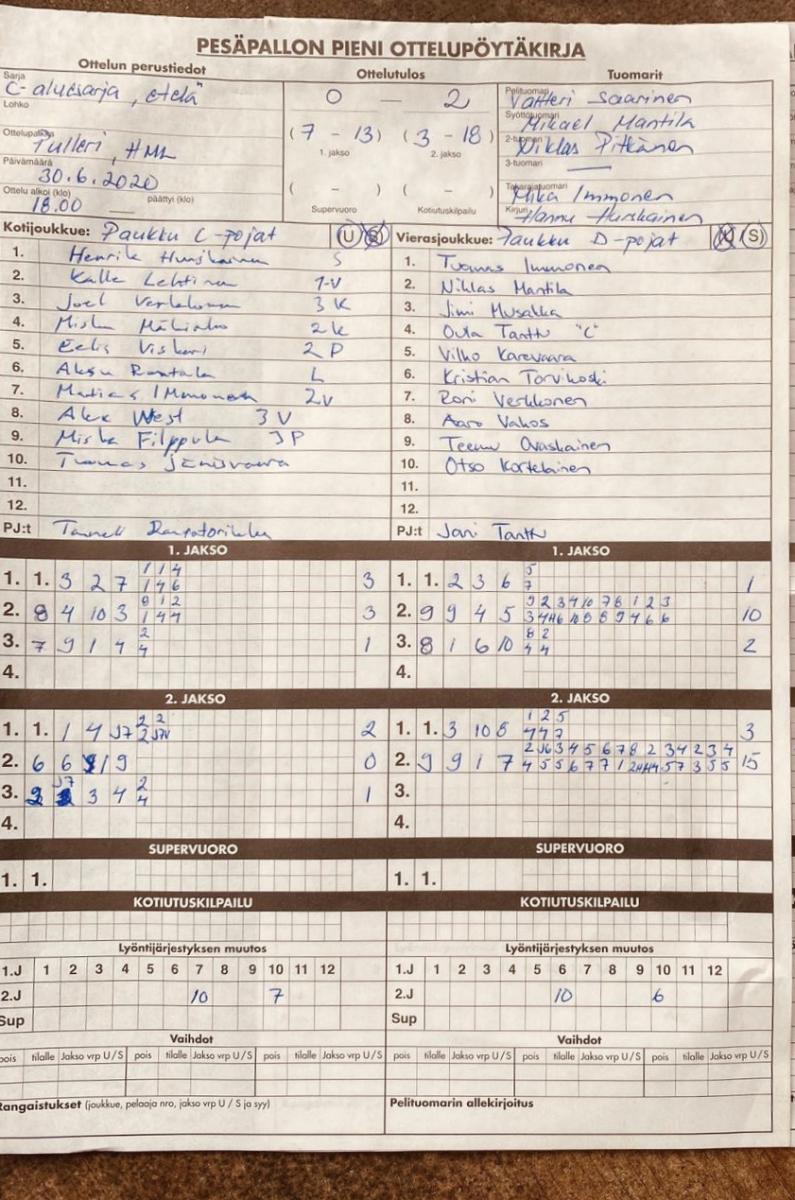 PESÄPALLON PIENI OTTELUPÖYTÄKIRJA
Ottelun perustiedot
Ottelutulos
Tuomarit
Sarja
C-aluesarja, "etelä"
Lohko
Ottelupaikka
Pulleri, HML
Päivämäärä
30.6.2020
Ottelu alkoi (klo) päättyi (klo)
18.00
0 — 2
(7 - 13) (3 - 18)
1. jakso 2. jakso
( - ) ( - )
Supervuoro Kotiutuskilpailu
Pelituomari
Valtteri Saarinen
Syöttötuomari
Mikael Mantila
2-tuomari
Niklas Pitkänen
3-tuomari —
Takarajatuomari
Mika Immonen
Kirjuri
Hannu Hurskainen
Kotijoukkue: Paukku C-pojat U S
1. Henrik Hurskainen S
2. Kalle Lehtinen 1-V
3. Joel Verkkonen 3K
4. Miska 2k
5. Eelis Viskari 2P
6. Aksu Rantala L
7. Matias Immonen 2V
8. Alex West 3V
9. Miska Filppula 3P
10. Tuomas
11.
12.
PJ:t
Vierasjoukkue: Paukku D-pojat U S
1. Tuomas Immonen
2. Niklas Mantila
3. Jimi Musakka
4. Outa Tanttu "C"
5. Vilho Karevaara
6. Kristian Torvikoski
7. Roni Verkkonen
8. Aaro Vahos
9. Teemu Ovaskainen
10. Otso Kortelainen
11.
12.
PJ:t Jani Tanttu
1. JAKSO
1. 1. 3 2 7 1 1 4 3
1 4 6
2. 8 4 10 3 8 1 2 3
1 4 4
3. 7 9 1 4 2 1
4
4.
1. JAKSO
1. 1. 2 3 6 5 1
7
2. 9 9 4 5 9 2 3 4 10 7 8 1 2 3 10
3. 8 1 6 10 8 2 2
4 4
4.
2. JAKSO
1. 1. 1 4 J7 2 2 2
2. 6 6 1 9 0
3. 2 J7 3 4 2 1
4
4.
2. JAKSO
1. 1. 3 10 8 1 2 5 3
7 4 7
2. 9 9 1 7 2 J6 3 4 5 6 7 8 2 3 4 2 3 4 15
3.
4.
SUPERVUORO
1. 1.
SUPERVUORO
1. 1.
KOTIUTUSKILPAILU
KOTIUTUSKILPAILU
Lyöntijärjestyksen muutos
1.J 1 2 3 4 5 6 7 8 9 10 11 12
2.J 10 7
Sup
Lyöntijärjestyksen muutos
1.J 1 2 3 4 5 6 7 8 9 10 11 12
2.J 10 6
Sup
Vaihdot
pois tilalle Jakso vrp U/S pois tilalle Jakso vrp U/S pois tilalle Jakso vrp U/S
Vaihdot
pois tilalle Jakso vrp U/S pois tilalle Jakso vrp U/S pois tilalle Jakso vrp U/S
Rangaistukset (joukkue, pelaaja nro, jakso vrp U / S ja syy)
Pelituomarin allekirjoitus